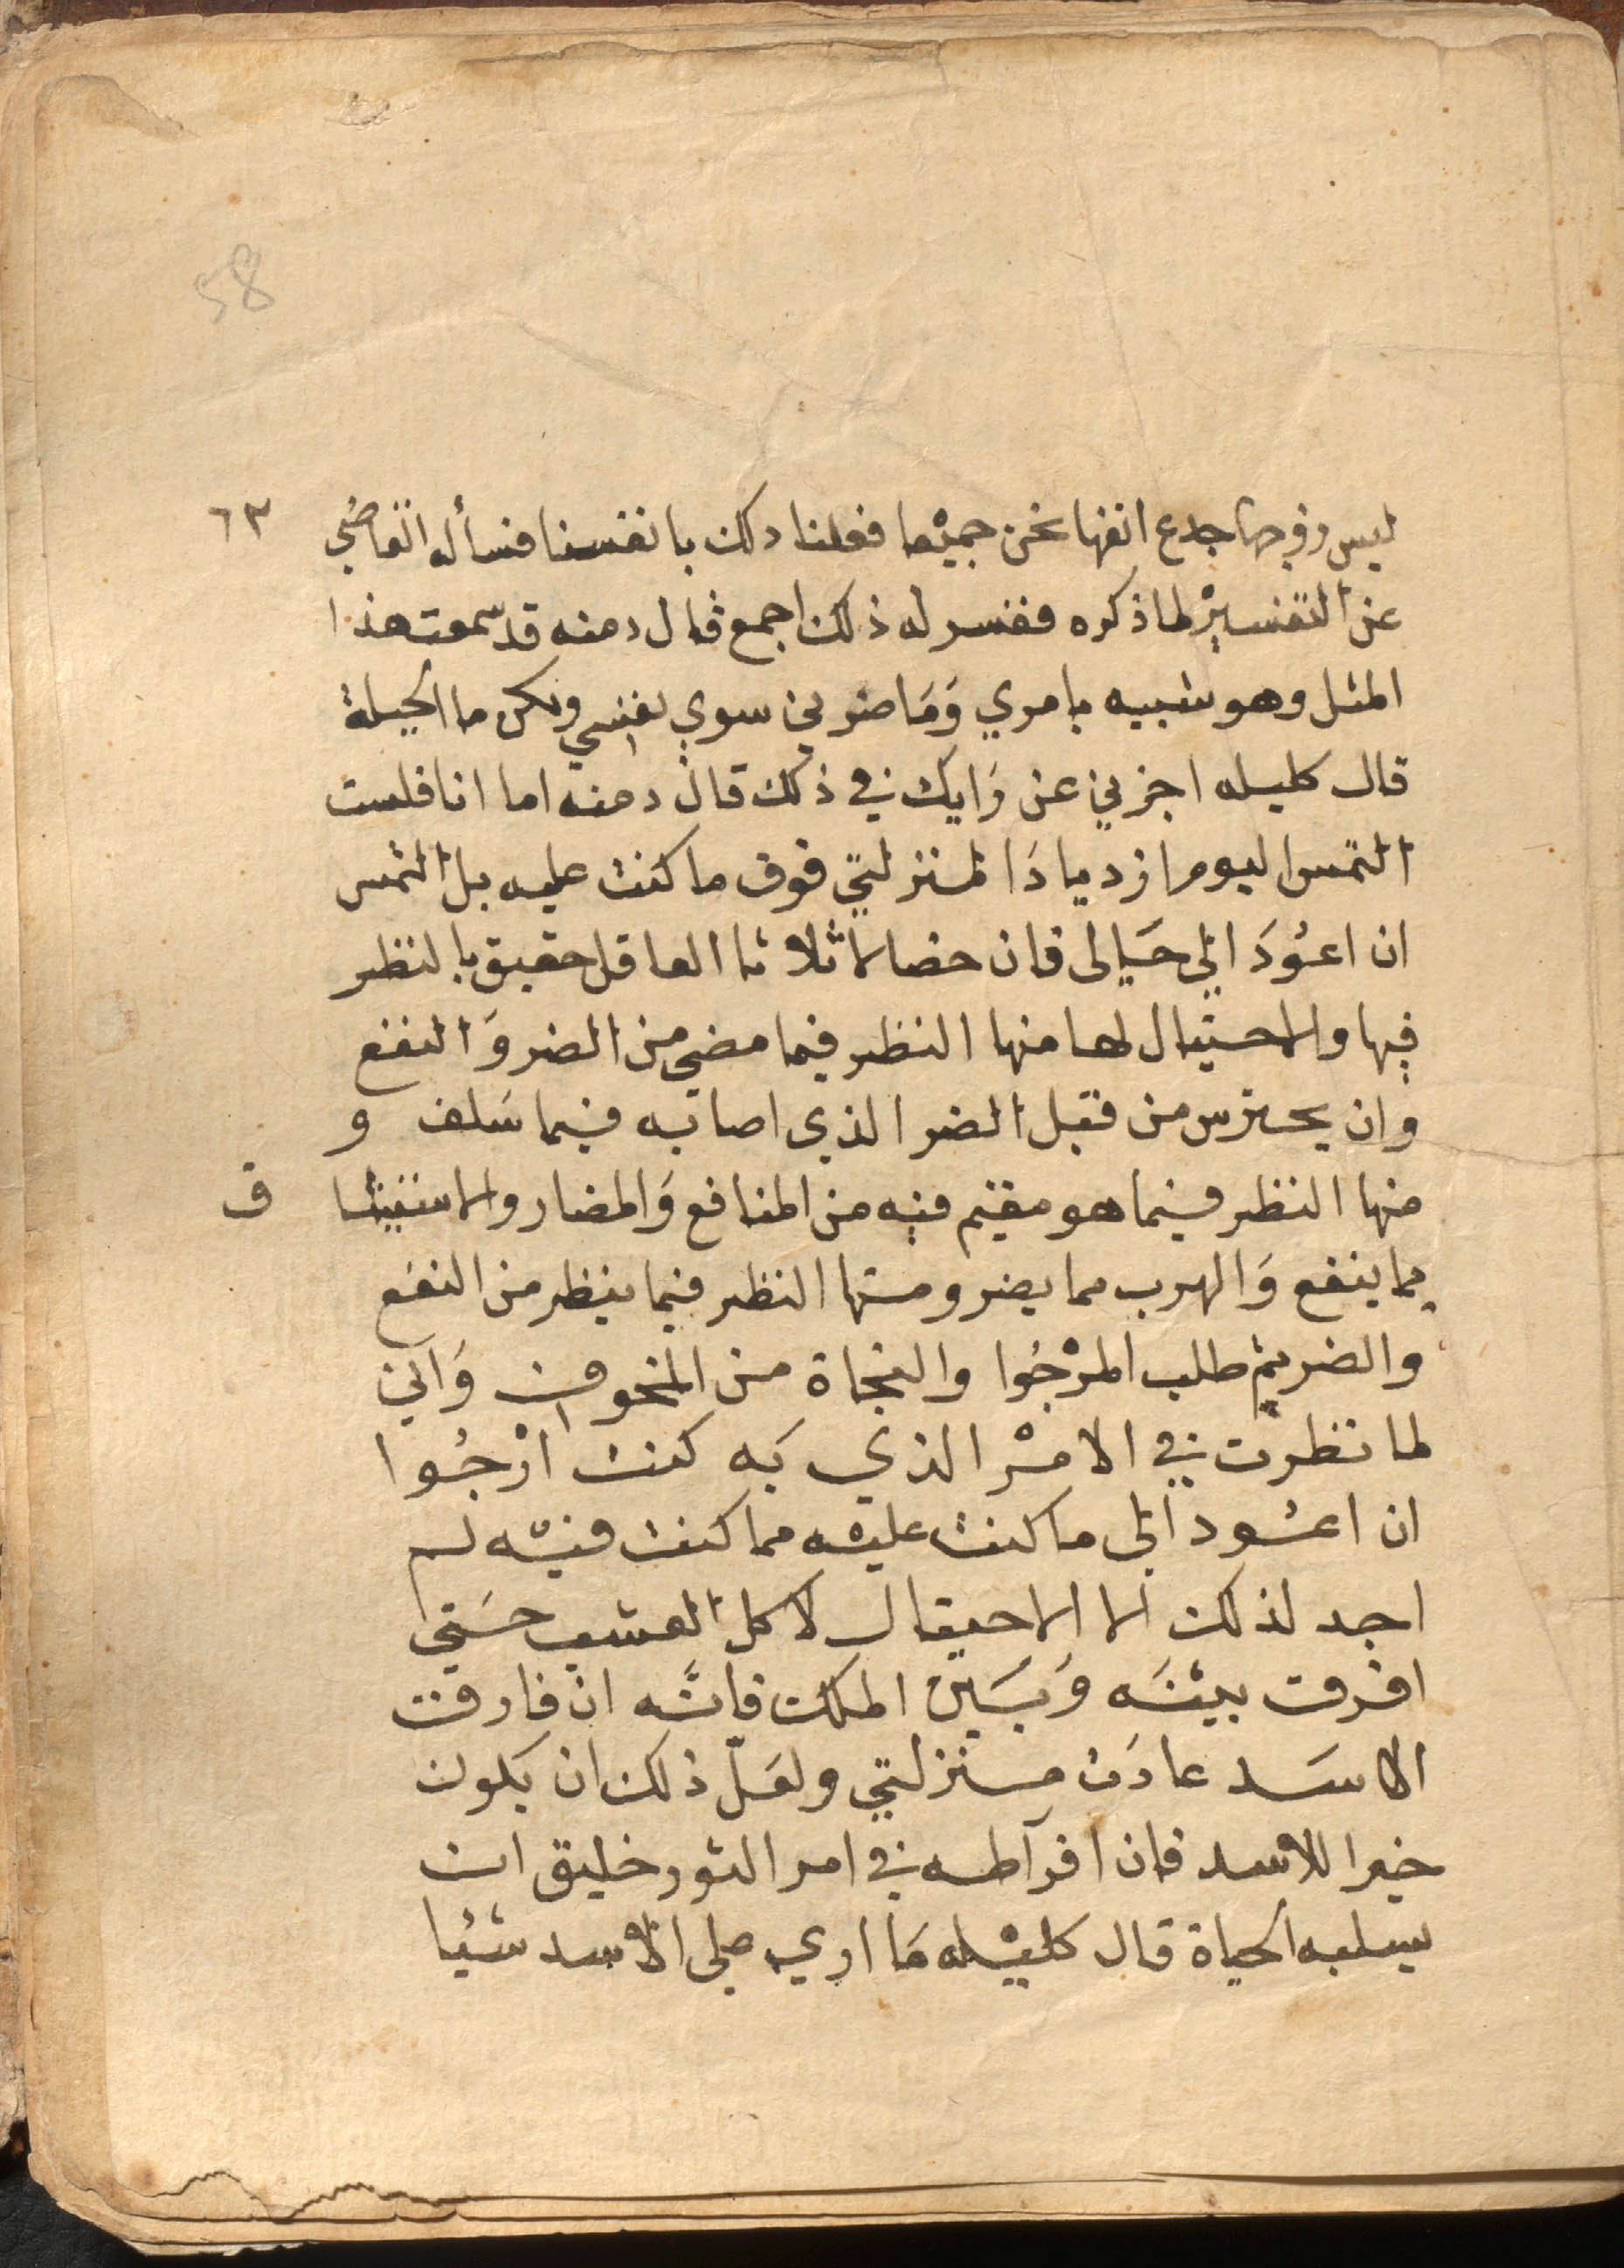 58
٦٣
ليس زوجها جدع انفها نحن جميْعا فعلنا ذلك بانفسنا فسأله القاضي
عن التفسيْر لما ذكره ففسر له ذلك اجمع قال دمنه قد سمعت هذا
المثل وهو شبيه بامري وَمَا ضرني سوي نفسي ولكن ما الحيلة
قال كليله اخبرني عن رَايك في ذلك قال دمنه اما انا فلست
التمس اليوم ازديادَا لمنزلتي فوق ما كنت عليه بل التمس
ان اعوُدَ الي حَالى فان خصالا ثلاثا العاقل حقيق بالنظر
فيها والاحتيال لها منها النظر فيما مضي من الضر وَالنفع
وان يحترس من قبل الضر الذي اصابه فيما سَلف و
منها النظر فيما هو مقيم فيه من المنافع وَالمضار والاستيثا ق
بما ينفع وَالهرب مما يضر ومنها النظر فيما ينظر من النفع
والضر ثم طلب المرْجُوا والنجاة من المخوف وَاني
لما نظرْت في الامْر الذي بَه كنت ارْجُوا
ان اعـُود الى ما كنت عليْه مما كنت فيْه لم
اجد لذلك الا الاحتيال لاكل العشب حَتي
افرق بيْنَه وَبَين المـلك فانَّه ان فارقت
الاسَد عادَت منزلتي ولعَلّ ذلك ان يكون
خيرا للاسد فان افراطه في امر الثور خليق ان
يسلبه الحياة قال كليْله مَا اري على الاسد شيْئا